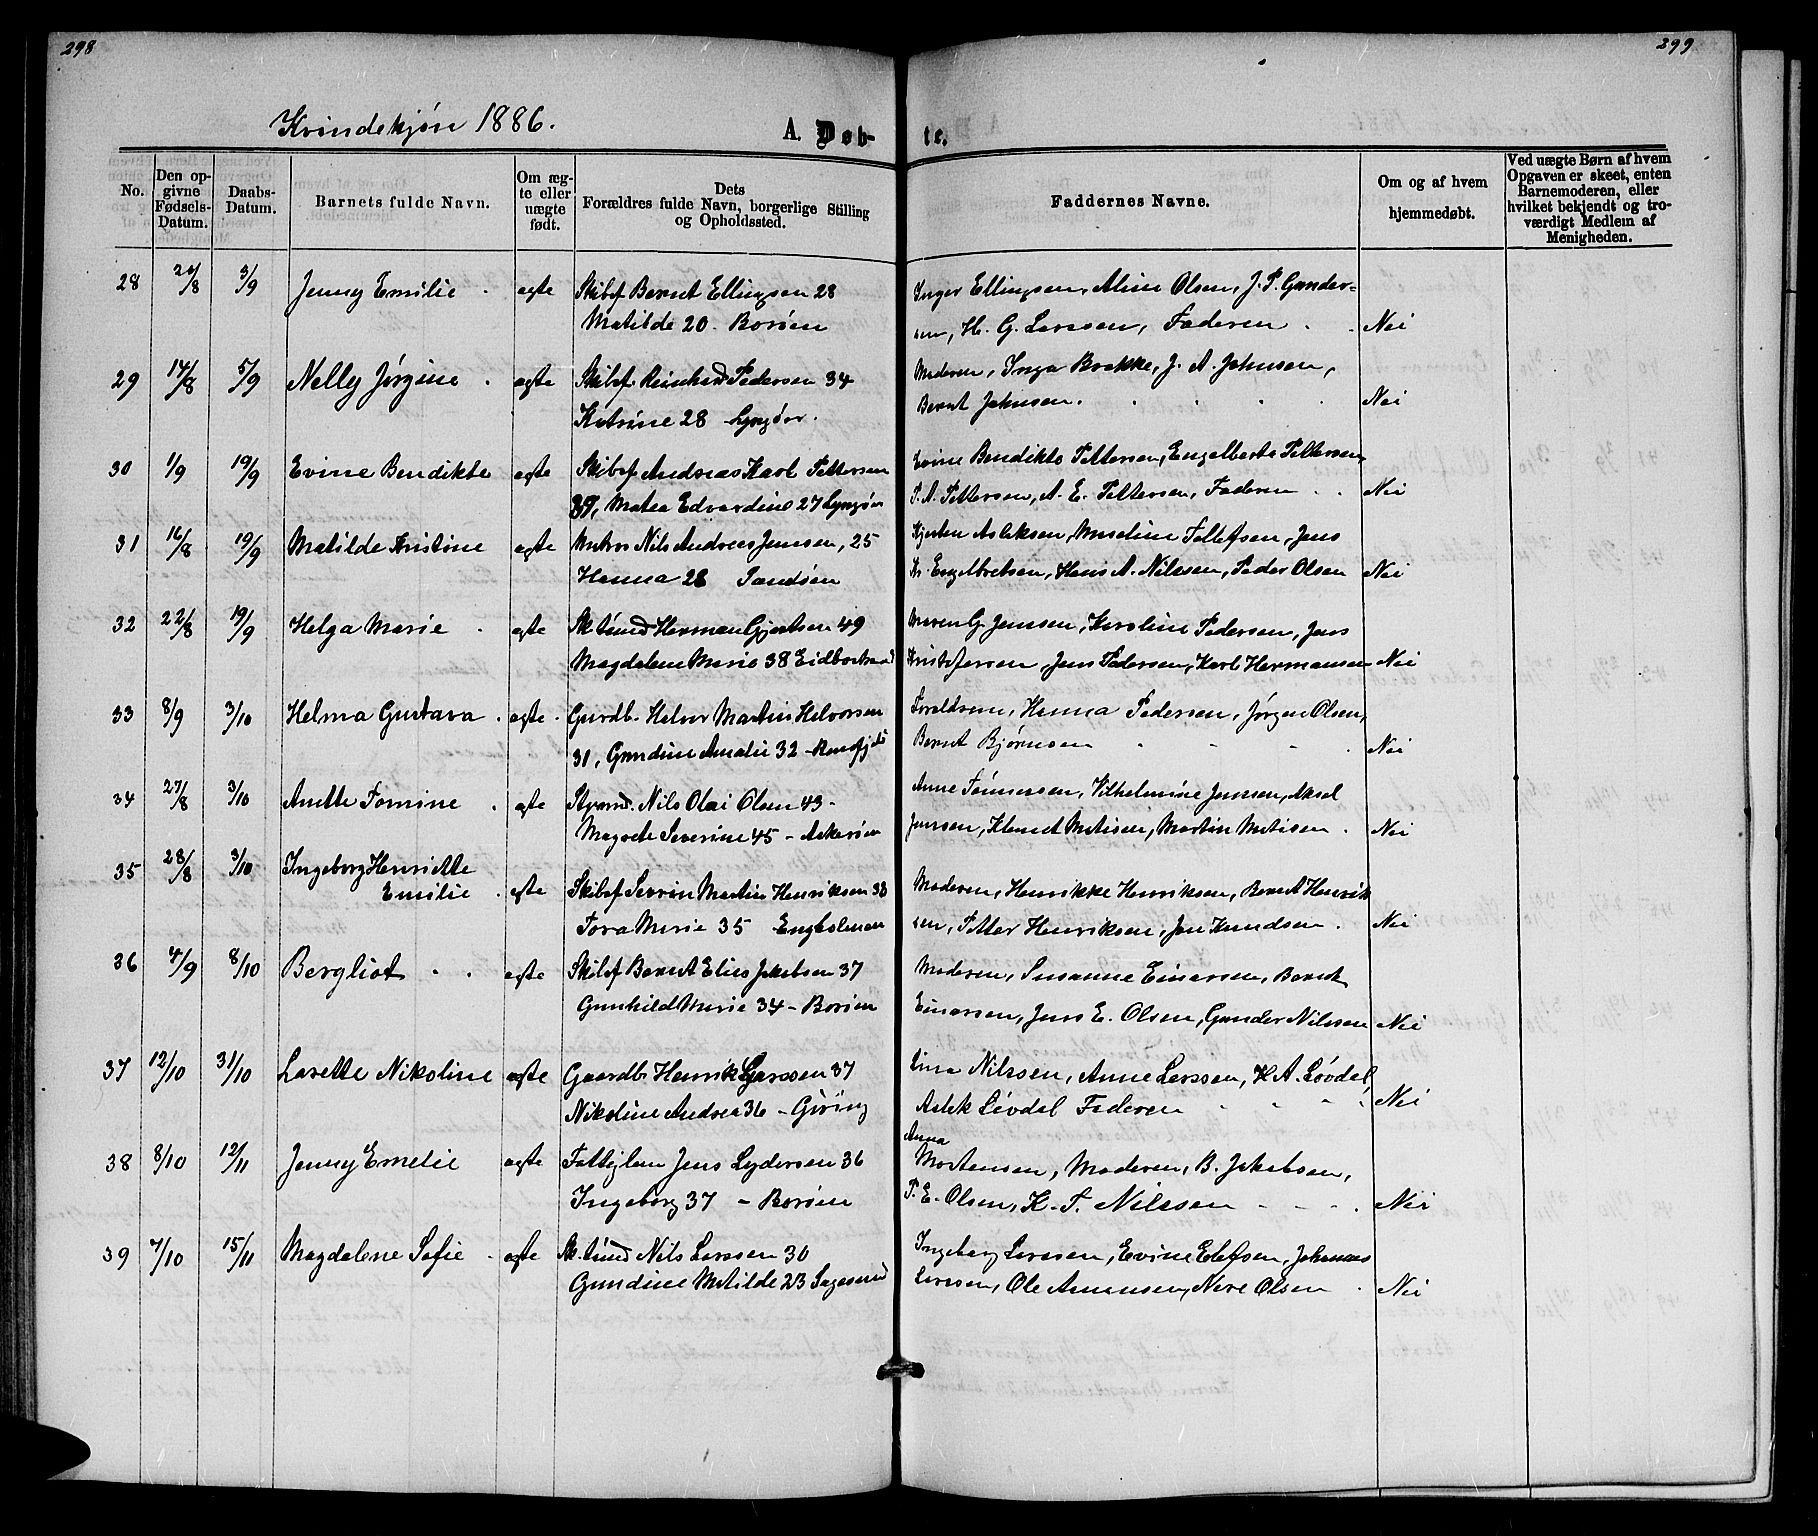 298
299
Kvindekjøn 1886.
A. Døb-
te.
No.
Den op-
givne
Fødsels-
Datum.
Daabs-
Datum.
Barnets fulde Navn.
Om æg-
te eller
uægte
født.
Dets
Forældres fulde Navn, borgerlige Stilling
og Opholdssted.
Faddernes Navne.
Om og af hvem
hjemmedøbt.
Ved uægte Børn af hvem
Opgaven er skeet, enten
Barnemoderen, eller
hvilket bekjendt og tro-
værdigt Medlem af
Menigheden.
28 /8 3/9 Jenny Emilie . ægte Skibsf Bernt Ellingsen 28 Inger Ellingsen, Aline Olsen, J. P. Gunder-
Matilde 20. Borøen sen, H. G. Larssen, Faderen . . Nei
29 14/8 5/9 Nelly Jørgine . ægte Skibsf. Reinhard Pedersen 34 Moderen, Inga Brekke, J. A. Johnsen,
Katrine 28 Lyngør. Bernt Johnsen. Nei
30 1/9 19/9 Evine Bendikte ægte Skibsf Andreas Karl Pettersen Evine Bendikte Pettersen, Engelberte Pettersen,
37, Matea Edvardine 27 Lyngør P. A. Pettersen, A. E. Pettersen, Faderen . . Nei
31 16/8 19/9 Matilde Kristine ægte Matros Nils Andreas Jensen, 25 Kjersten Aslaksen, Maseline Tellefsen, Jens
Hanna 28 Sandøen Kr. Engelbretsen, Hans A. Nilssen, Peder Olsen Nei
32 22/8 19/9 Helga Marie . ægte Sktømd Herman Gjertsen 49 Maren G. Jenssen, Karoline Pedersen, Jens
Magdalene Marie 38 Eidbostrand Kristofersen, Jens Pedersen, Karl Hermansen Nei
33 8/9 3/10 Helma Gustava . ægte . Gaardb. Halvor Martin Halvorsen Forældrene, Hanna Pedersen, Jørgen Olsen,
31, Gundine Amalie 32 - Bernt Bjørnsen Nei
34 27/8 3/10 Anette Tomine . ægte Strmd. Nils Olai Olsen 43 - Anne Tønnessen, Vilhelmine Jenssen, Aksel
Magrete Severine 45 - Askerøen Jenssen, Klemet Matisen, Martin Matisen . Nei
35 28/8 3/10 Ingeborg Henriette
Emilie . ægte Skibsf Severin Martin Henriksen 38 Moderen, Henrikke Henriksen, Bernt Henrik
Tora Marie 35 Engholmen sen, Petter Henriksen, Jan Knudsen . Nei
36 4/9 8/10 Bergliot . . ægte Skibsf Bernt Elias Jakobsen 37 Moderen, Susanne Einarsen, Bernt
Gunhild Marie 34 - Borøen Einarsen, Jens E. Olsen, Gunder Nilssen Nei
37 12/10 31/10 Lovette Nikoline ægte Gaardb. Henrik Larssen 37 Lina Nilssen, Anne Larssen, K. A. Løvdal,
Nikoline Andrea 36 - Goving Aslak Løvdal Faderen Nei
38 8/10 12/11 Jenny Emelie ægte Fattiglem Jens Lydersen 36 Anna
Mortensen, Moderen, B. Jakobsen,
Ingeborg 37 - Borøen P. E. Olsen, K. T. Nilssen Nei
39 7/10 15/11 Magdalene Sofie . ægte Sk.tømd Nils Larssen 30 Ingeborg Larssen, Evine Elefsen, Johannes
Gundine Matilde 23 Sagesund Larssen, Ole Amonsen, Nere Olsen . Nei